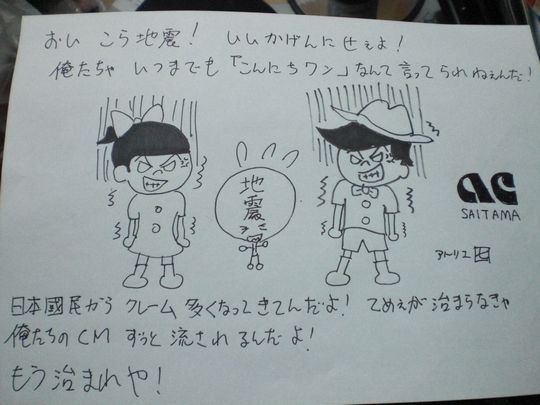 おい こら地震! いいかげんにせぇよ!
俺たちゃ いつまでも「こんにちワン」なんて言ってられねぇんだ!
地震
ac
SAITAMA
アトリエ
日本國民から クレーム 多くなってきてんだよ! てめえが 治まらなきゃ
俺たちのCM ずっと流されるんだよ!
もう治まれや!